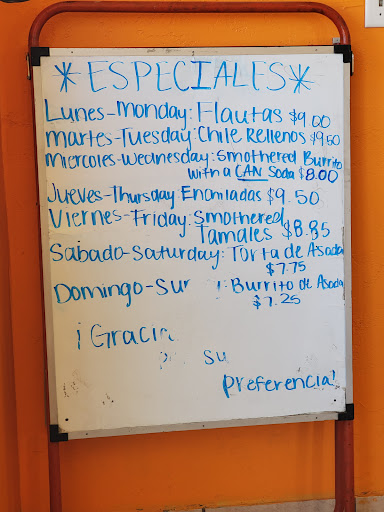 *ESPECIALES*
Lunes-Monday: Flautas $9.00
Martes-Tuesday: Chile Rellenos $9.50
Miercoles-Wednesday: Smothered Burrito
with a CAN Soda $8.00
Jueves-Thursday Enchiladas $9.50
Viernes-Friday: Smothered
Tamales $8.85
Sabado-Saturday: Torta de Asada
$7.75
Domingo-Sun: Burrito de Asada
$7.25
¡Gracia
su
preferencia!